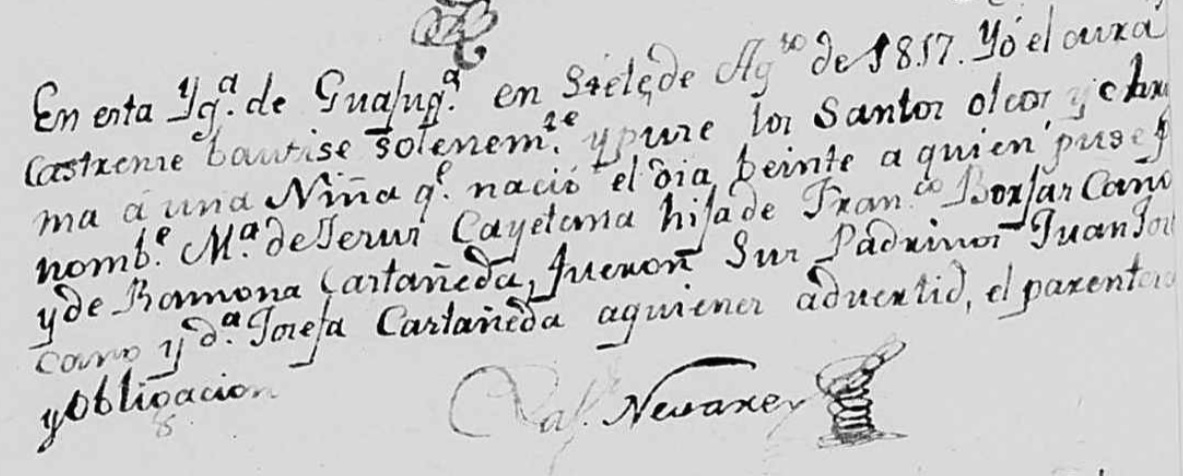 En esta Yg.ª de Guajuq.ª en Siete de Ag.to de 1817. Yó el cura
Castrense bautise solenem.te y puse los Santos oleos y chris
ma á una Niña q.e nació el dia beinte a quien puse p
nomb.e M.ª de Jesus Cayetana hija de Fran.co Borjas Cano
y de Ramona Castañeda, fueron Sus Padrinos Juan Jose
cano y d.ª Josefa Castañeda aquienes advertid, el parentesco
y obligacion
Raf. Nevares